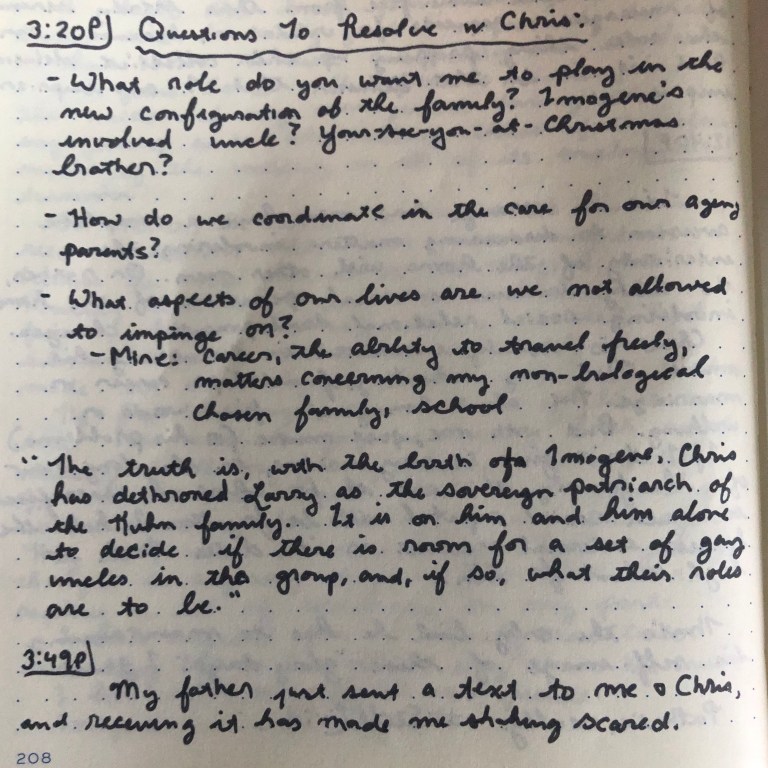 3:20P] Questions To Resolve w Chris:
- What role do you want me to play in the
new configuration of the family? Imogene's
involved uncle? Your-see-you-at-Christmas
brother?
- How do we coordinate in the care for our aging
parents?
- What aspects of our lives are we not allowed
to impinge on?
- Mine: Career, the ability to travel freely,
matters concerning my non-biological
chosen family, school
"The truth is, with the birth of Imogene, Chris
has dethroned Larry as the sovereign patriarch of
the Huhn family. It is on him and him alone
to decide if there is room for a set of gay
uncles in the group, and, if so, what their roles
are to be."
3:49P]
My father just sent a text to me & Chris,
and receiving it has made me shaking scared.
208